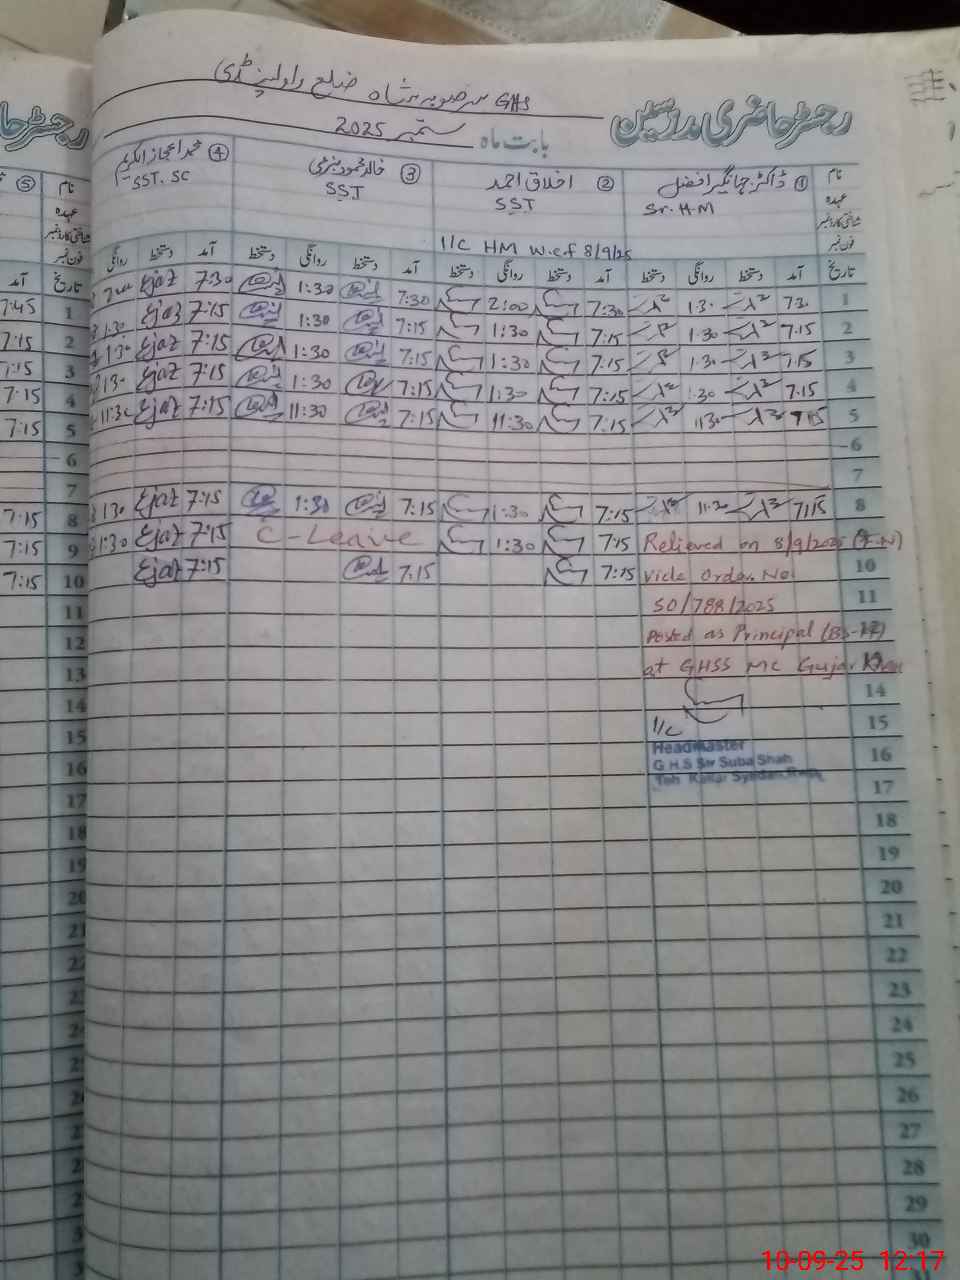 GHS سر صوبہ شاہ ضلع راولپنڈی
رجسٹر حاضری مدرسین
بابت ماہ ستمبر 2025
نام ① ڈاکٹر جہانگیر افضل ② اخلاق احمد ③ خالد محمود ④ محمد اعجاز الکریم نام ⑤
عہدہ Sr. H.M SST SST SST. SC عہدہ
شناختی کارڈ نمبر
فون نمبر I/C HM w.e.f 8/9/25 فون نمبر
تاریخ آمد دستخط روانگی دستخط آمد دستخط روانگی دستخط آمد دستخط روانگی دستخط آمد دستخط روانگی تاریخ آمد
1 7.30 1.30 7:30 2:00 7:30 1:30 7:30 Ejaz 1 7:45
2 7.15 1.30 7:15 1:30 7:15 1:30 7:15 Ejaz 1:30 2 7:15
3 7.15 1.30 7:15 1:30 7:15 1:30 7:15 Ejaz 1:30 3 7:15
4 7.15 1.30 7:15 1:30 7:15 1:30 7:15 Ejaz 1:30 4 7:15
5 7:15 11:30 7:15 11:30 7:15 11:30 7:15 Ejaz 11:30 5 7:15
6 6
7 7
8 7:15 7:15 1:30 7:15 1:30 7:15 Ejaz 1:30 8 7:15
9 Relieved on 8/9/2025 (F.N) 7:15 1:30 C-Leave 7:15 Ejaz 1:30 9 7:15
10 Vide Order No 7:15 7:15 7:15 Ejaz 10 7:15
11 SO/788/2025 11
12 Posted as Principal 12
13 at GHSS MC Gujar Khan 13
14 14
15 I/C 15
16 Headmaster 16
G H.S Sir Suba Shah
17 Teh Kallar Syedan, Rwp 17
18 18
19 19
20 20
21 21
22 22
23
24
25
26
27
28
29
30
10-09-25 12:17